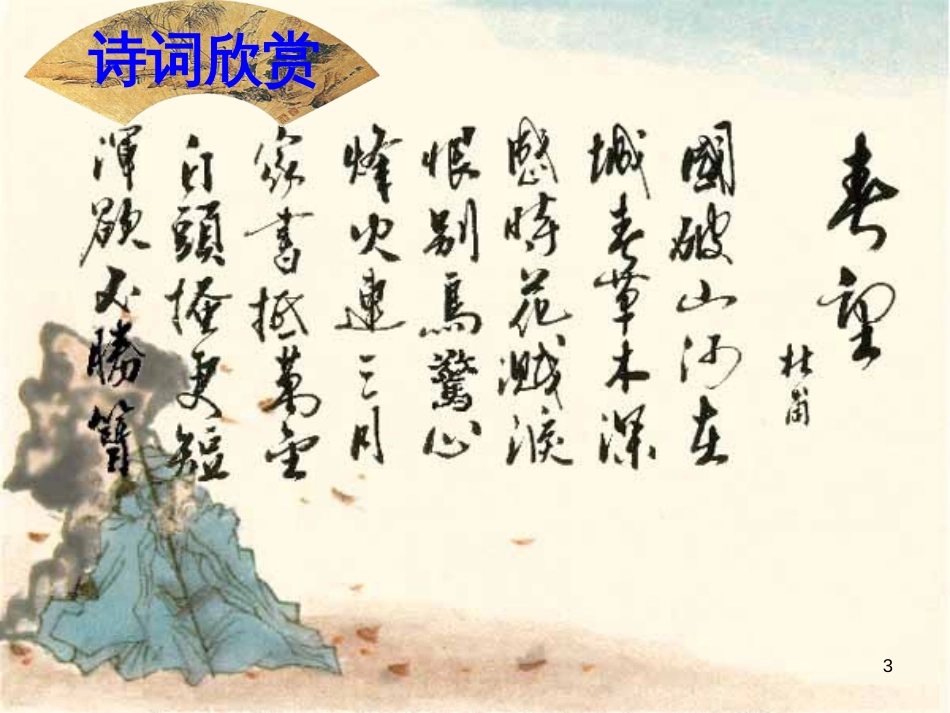 诗词欣赏
春望
杜甫
國破山河在
城春草木深
感時花濺淚
恨別鳥驚心
烽火連三月
家書抵萬金
白頭搔更短
渾欲不勝簪
3